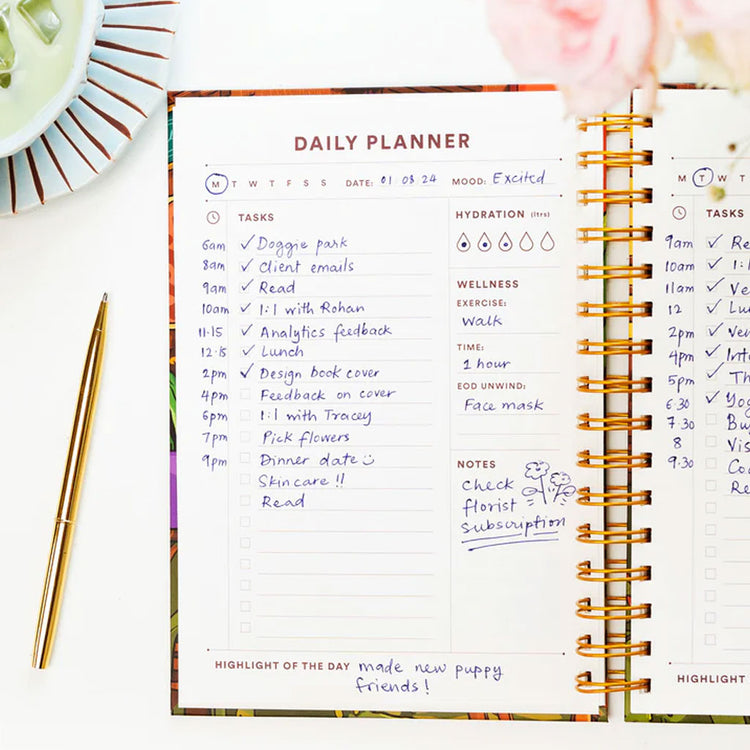 DAILY PLANNER
M T W T F S S DATE: 01 08 24 MOOD: Excited
TASKS
6am Doggie park
8am Client emails
9am Read
10am 1:1 with Rohan
11·15 Analytics feedback
12·15 Lunch
2pm Design book cover
4pm Feedback on cover
6pm 1:1 with Tracey
7pm Pick flowers
9pm Dinner date
Skincare !!
Read
HYDRATION (ltrs)
WELLNESS
EXERCISE:
Walk
TIME:
1 hour
EOD UNWIND:
Face mask
NOTES
check
florist
subscription
HIGHLIGHT OF THE DAY made new puppy
friends!
M T W T
TASKS
9am Re
10am 1:1
11am Ve
12 Lu
2pm Ver
4pm Int
5pm Th
6·30 Yog
7·30 Bu
8 Vis
9·30 Co
Re
HIGHLIGHT